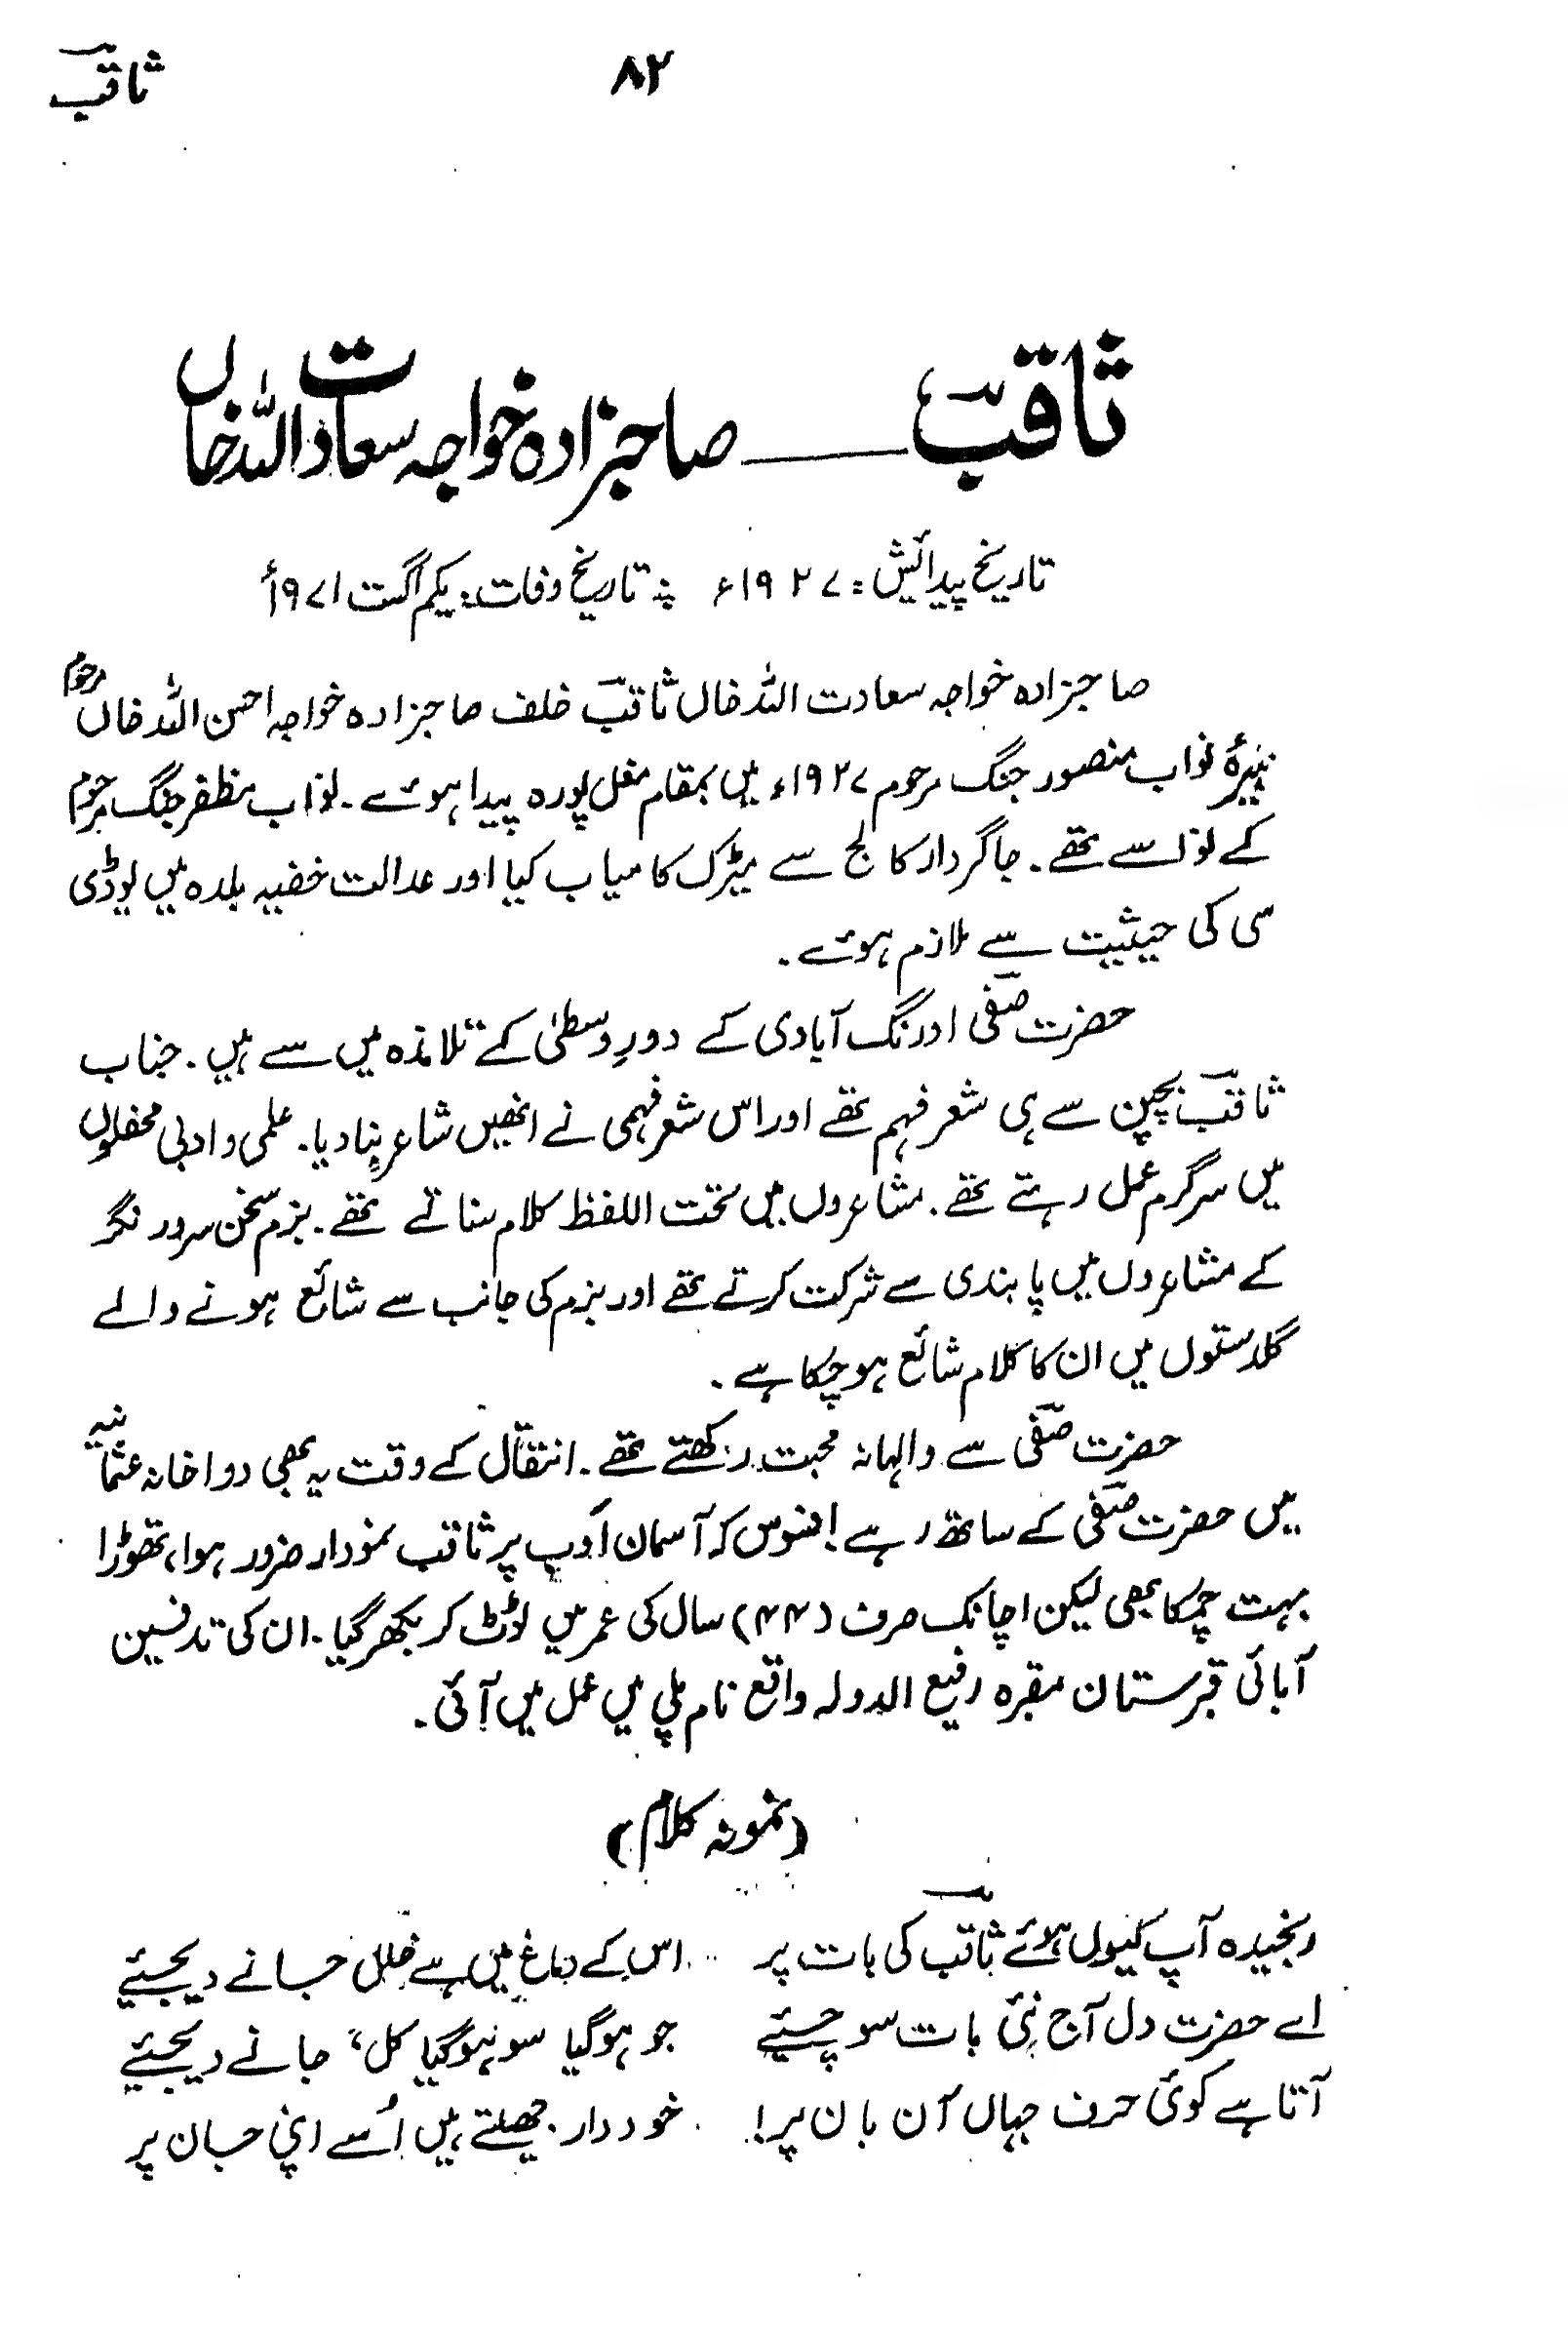 ثاقبؔ
۸۲
ثاقبؔ ــــــ صاحبزادہ خواجہ سعادت اللہ خاں
تاریخ پیدائش: ۱۹۲۷ء ؛ تاریخ وفات: یکم اگست ۱۹۷۱ء
صاحبزادہ خواجہ سعادت اللہ خاں ثاقبؔ خلف صاحبزادہ خواجہ احسن اللہ خاں مرحوم
نبیرۂ نواب منصور جنگ مرحوم ۱۹۲۷ء میں بمقام مغل پورہ پیدا ہوئے۔ نواب مظفر جنگ مرحوم
کے نواسے تھے۔ جاگردار کالج سے میٹرک کامیاب کیا اور عدالت خفیہ بلدہ میں یو ڈی
سی کی حیثیت سے ملازم ہوئے۔
حضرت صفیؔ اورنگ آبادی کے دورِ وسطیٰ کے تلامذہ میں سے ہیں۔ جناب
ثاقبؔ بچپن سے ہی شعر فہم تھے اور اس شعر فہمی نے انھیں شاعر بنا دیا۔ علمی و ادبی محفلوں
میں سرگرم عمل رہتے تھے۔ مشاعروں میں تحت اللفظ کلام سناتے تھے۔ بزم سخن سرور نگر
کے مشاعروں میں پابندی سے شرکت کرتے تھے اور بزم کی جانب سے شائع ہونے والے
گلدستوں میں ان کا کلام شائع ہو چکا ہے۔
حضرت صفیؔ سے والہانہ محبت رکھتے تھے۔ انتقال کے وقت یہ بھی دواخانہ عثمانیہ
میں حضرت صفیؔ کے ساتھ رہے! افسوس کہ آسمان ادب پر ثاقب نمودار ضرور ہوا، تھوڑا
بہت چمکا بھی لیکن اچانک صرف (۴۴) سال کی عمر میں ٹوٹ کر بکھر گیا۔ ان کی تدفین
آبائی قبرستان مقبرہ رفیع الدولہ واقع نام پلی میں عمل میں آئی۔
(نمونہ کلام)
رنجیدہ آپ کیوں ہوئے ثاقبؔ کی بات پر اس کے دماغ میں ہے خلل جانے دیجئیے
اے حضرت دل آج نئی بات سوچئیے جو ہو گیا سو ہو گیا کل، جانے دیجئیے
آتا ہے کوئی حرف جہاں آن بان پر! خوددار جھیلتے ہیں اُسے اپنی جان پر